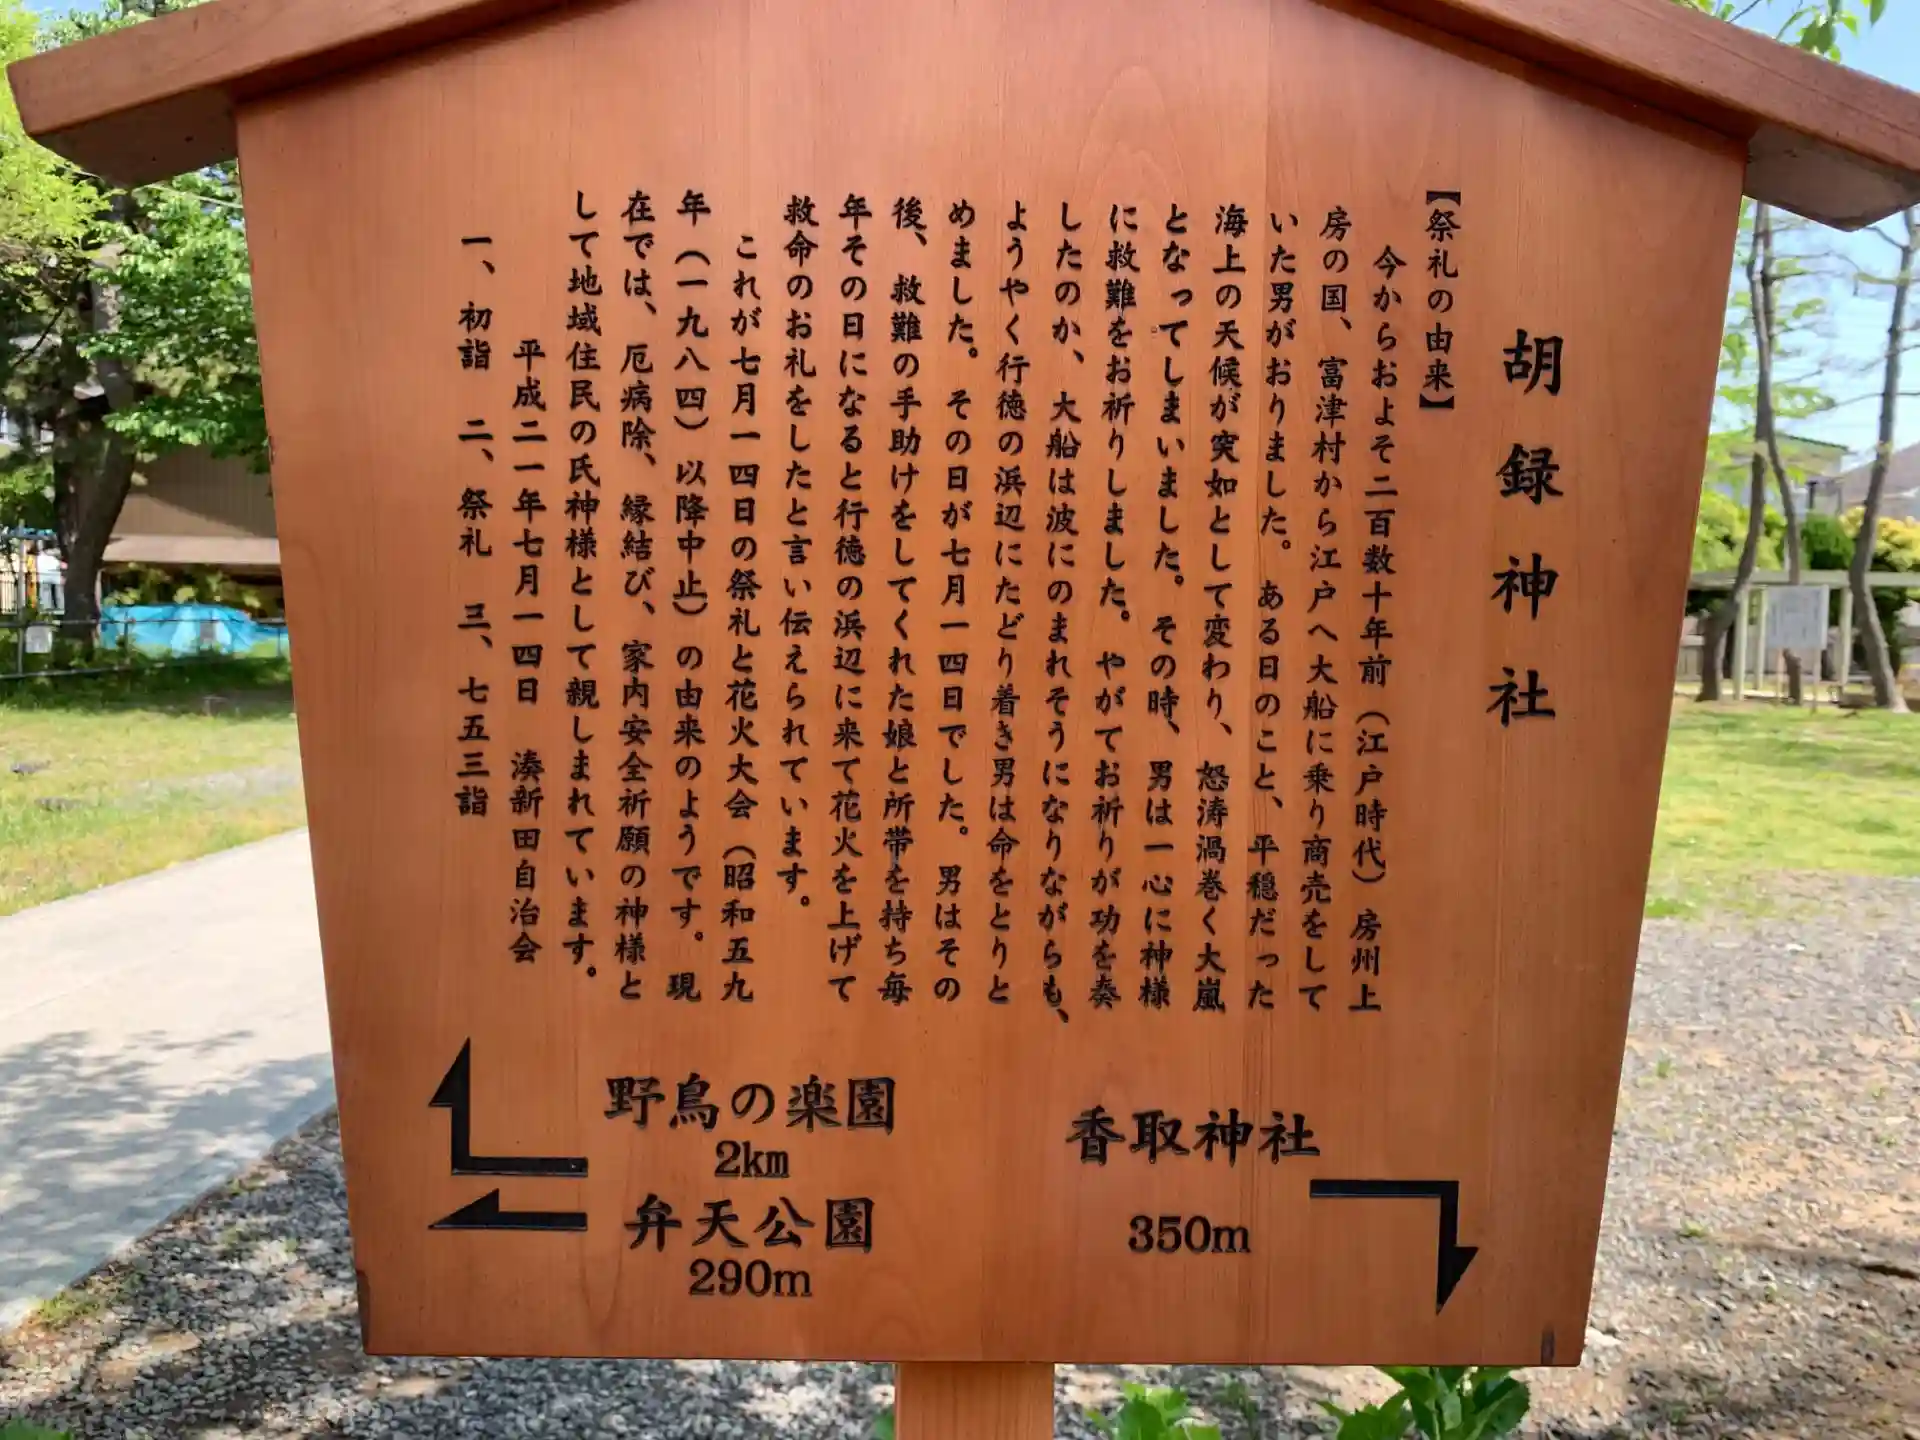 胡録神社
【祭礼の由来】
今からおよそ二百数十年前（江戸時代）房州上
房の国、富津村から江戸へ大船に乗り商売をして
いた男がおりました。ある日のこと、平穏だった
海上の天候が突如として変わり、怒涛渦巻く大嵐
となってしまいました。その時、男は一心に神様
に救難をお祈りしました。やがてお祈りが功を奏
したのか、大船は波にのまれそうになりながらも、
ようやく行徳の浜辺にたどり着き男は命をとりと
めました。その日が七月一四日でした。男はその
後、救難の手助けをしてくれた娘と所帯を持ち毎
年その日になると行徳の浜辺に来て花火を上げて
救命のお礼をしたと言い伝えられています。
これが七月一四日の祭礼と花火大会（昭和五九
年（一九八四）以降中止）の由来のようです。現
在では、厄病除、縁結び、家内安全祈願の神様と
して地域住民の氏神様として親しまれています。
平成二一年七月一四日　湊新田自治会
一、初詣　二、祭礼　三、七五三詣
野鳥の楽園
2km
弁天公園
290m
香取神社
350m